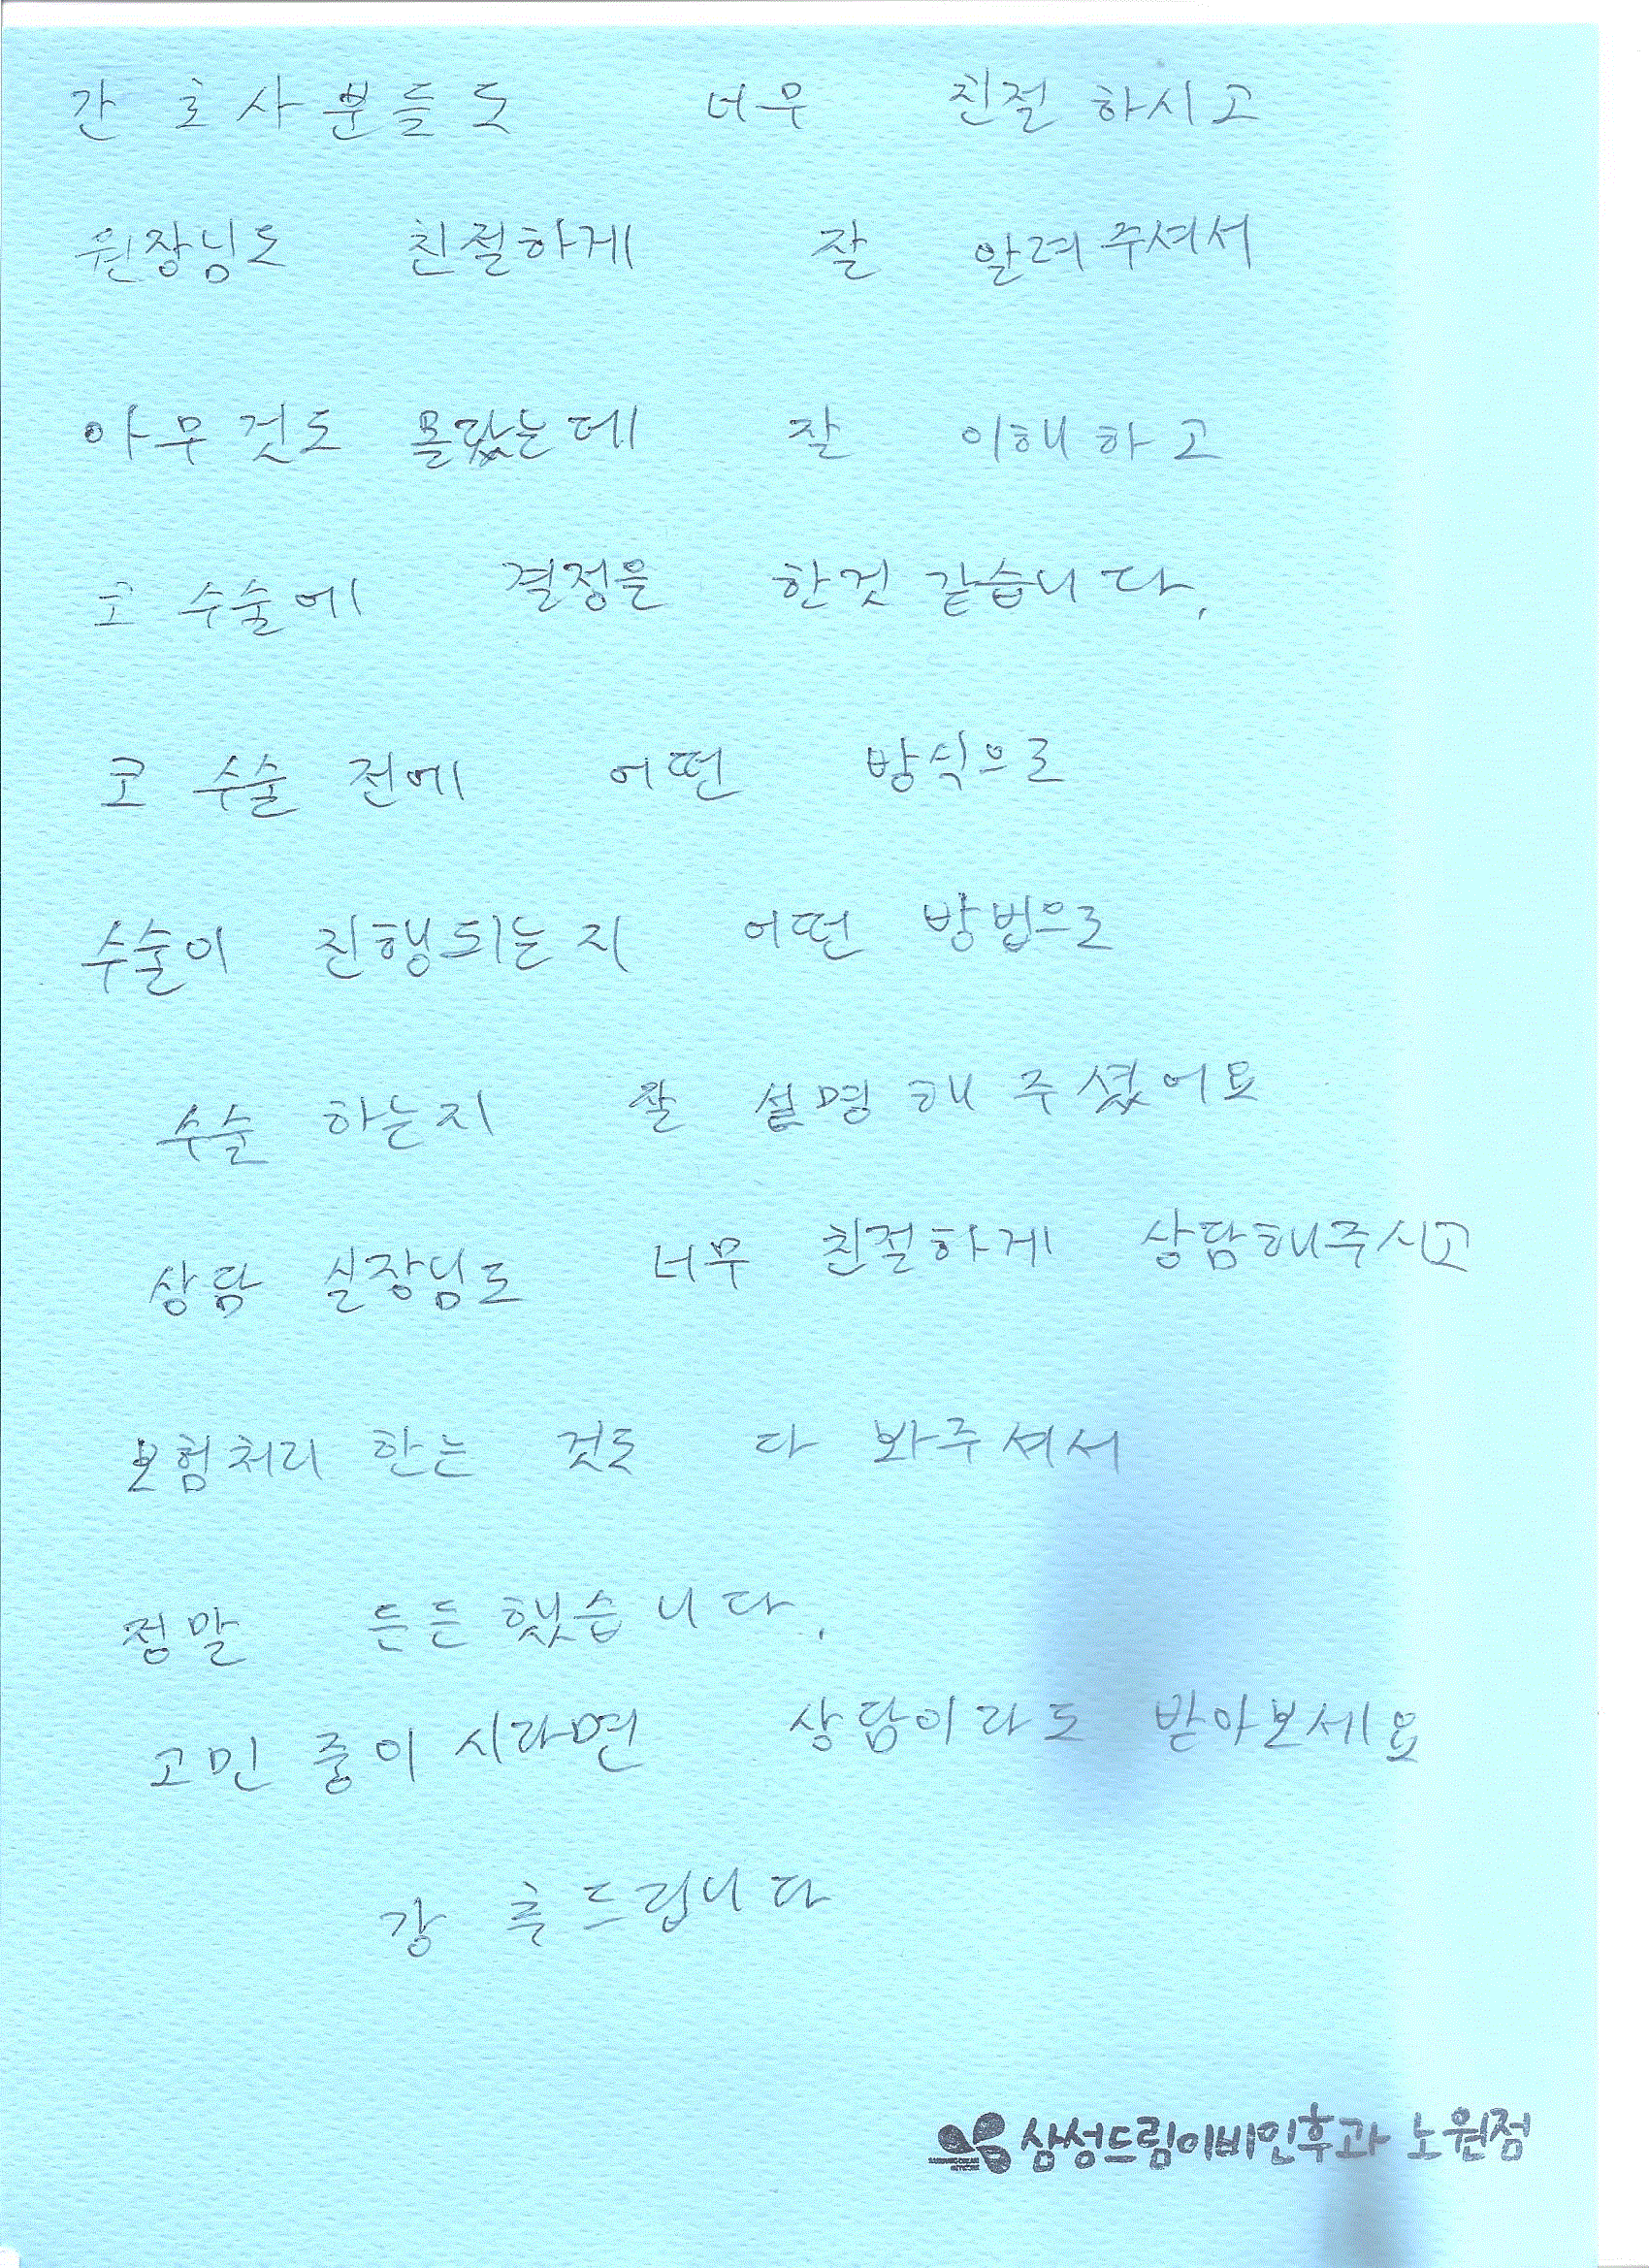 간호사분들도 너무 친절하시고
원장님도 친절하게 잘 알려주셔서
아무것도 몰랐는데 잘 이해하고
코 수술에 결정을 한것 같습니다.
코 수술 전에 어떤 방식으로
수술이 진행되는지 어떤 방법으로
수술 하는지 잘 설명해 주셨어요
상담 실장님도 너무 친절하게 상담해주시고
보험처리 한는 것도 다 봐주셔서
정말 든든했습니다.
고민 중이시라면 상담이라도 받아보세요
강추드립니다
삼성드림이비인후과 노원점